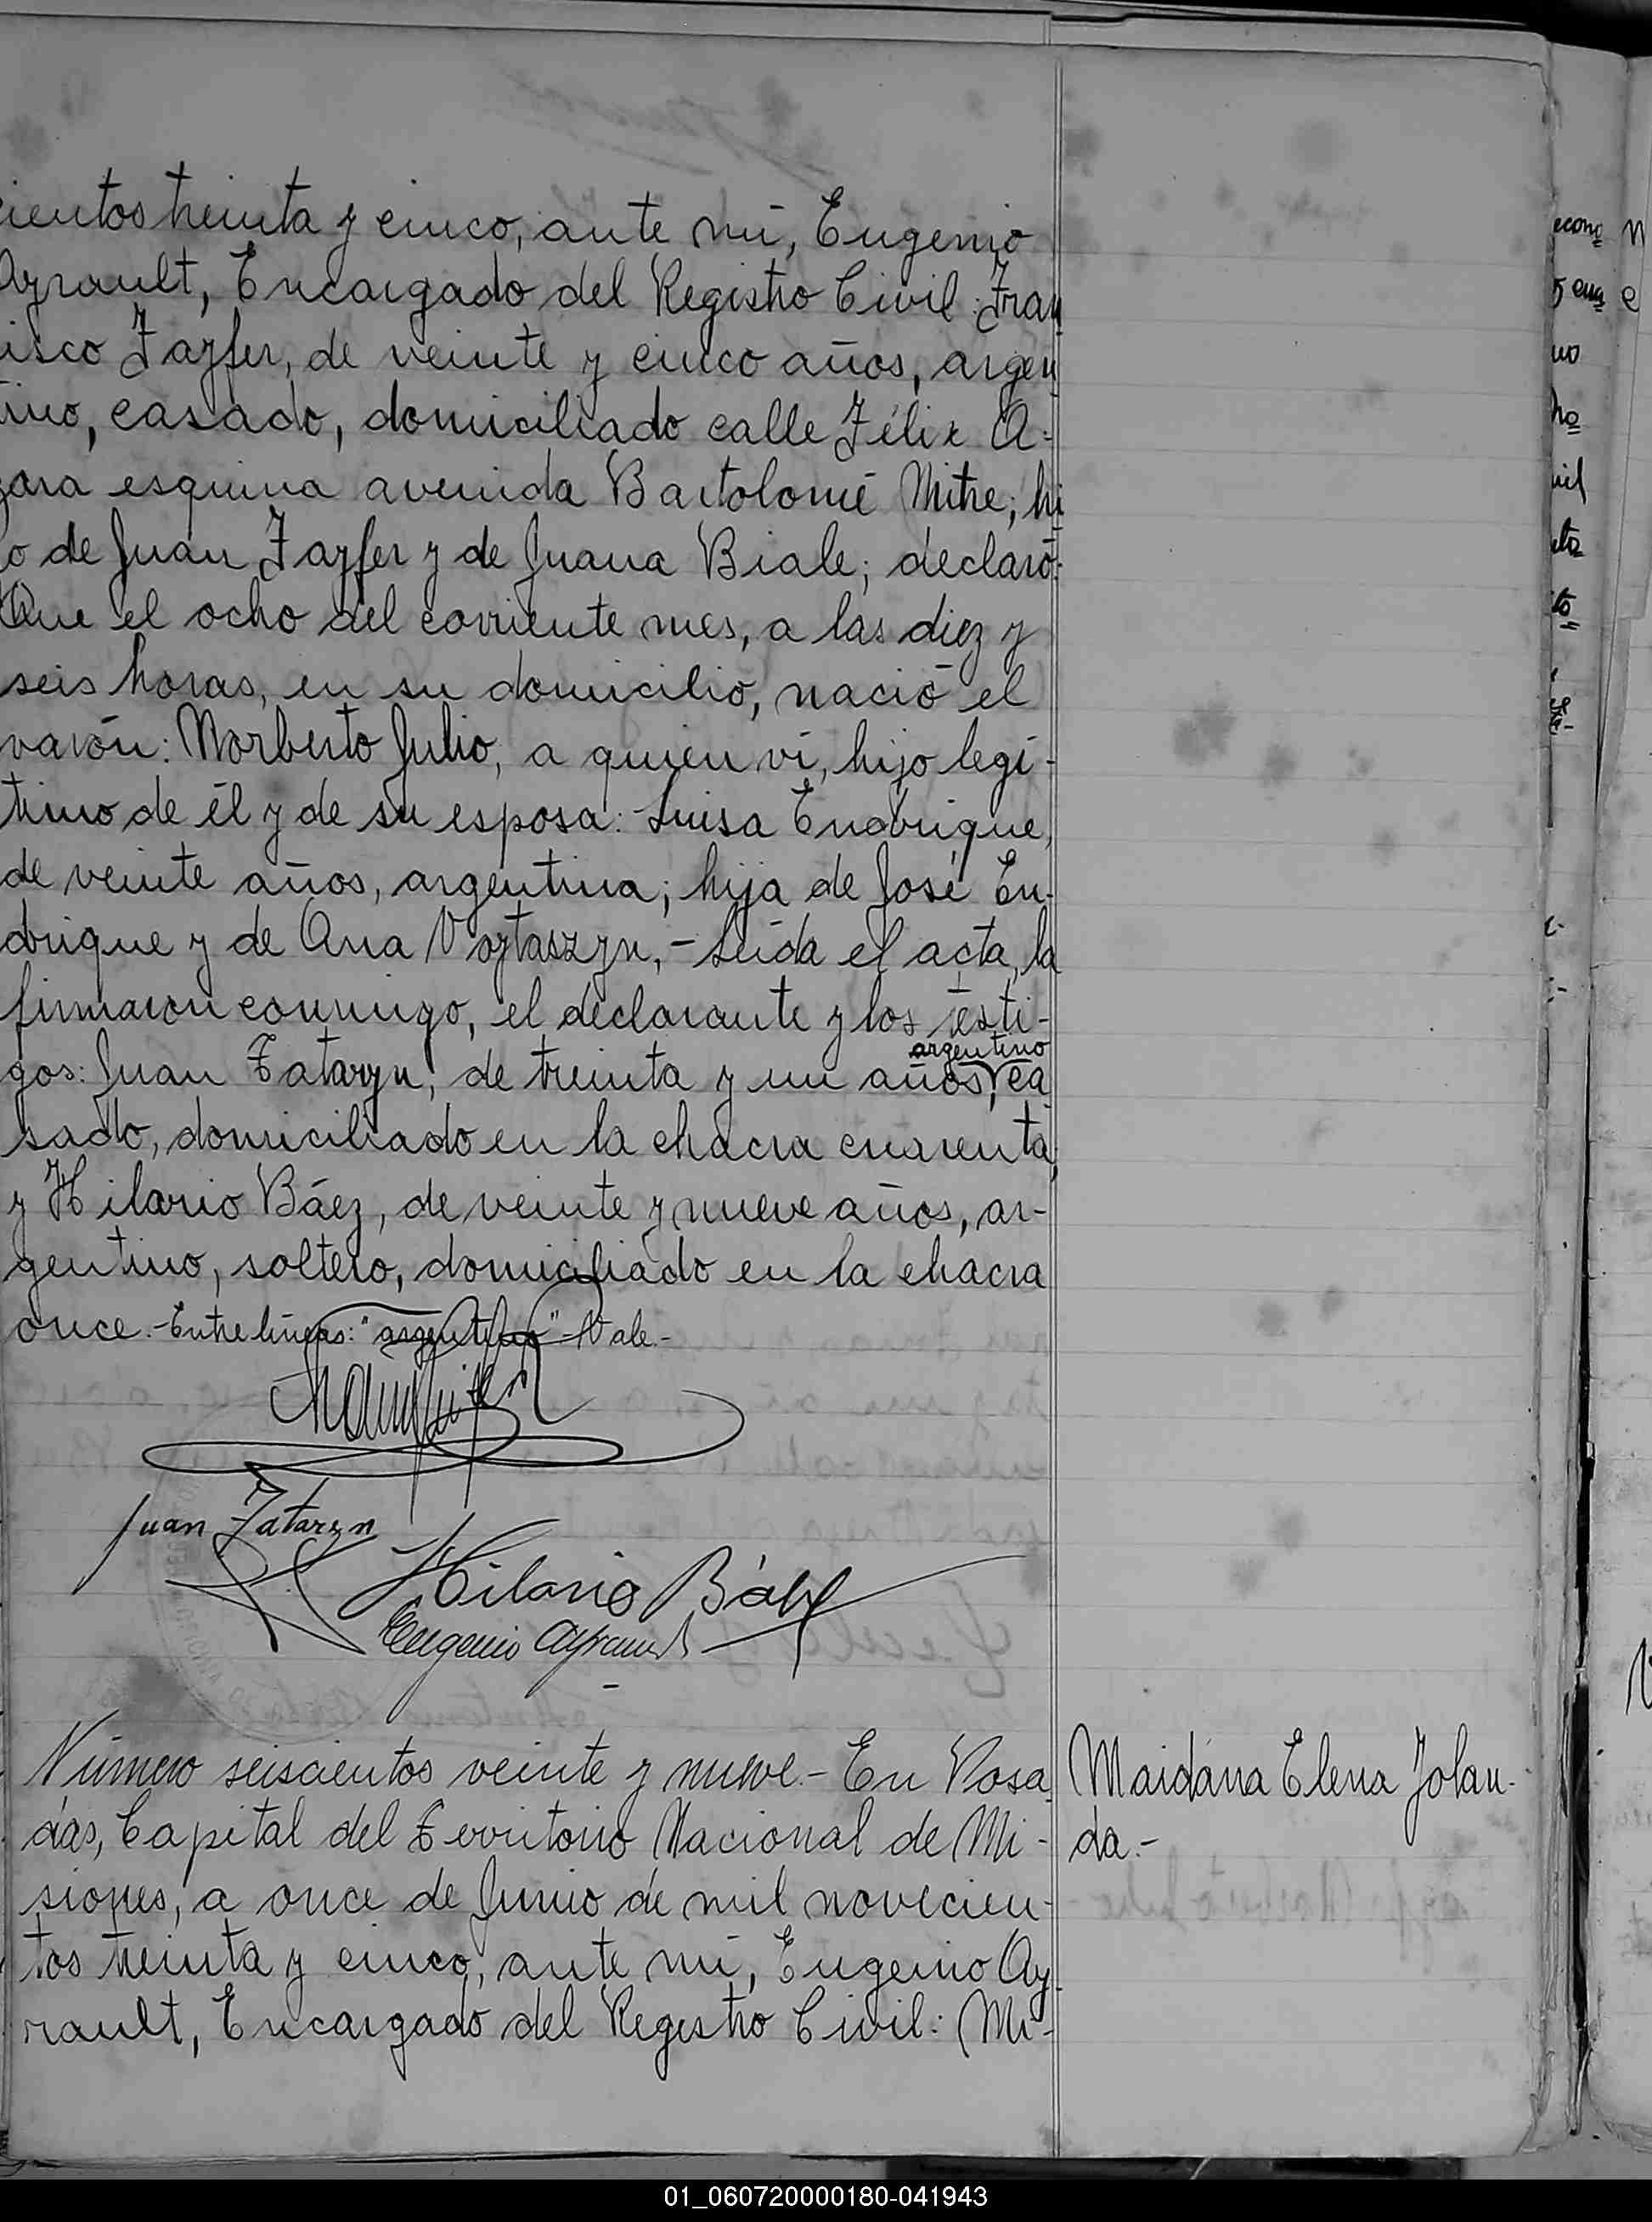 cientos treinta y cinco, ante mí, Eugenio
Ayrault, Encargado del Registro Civil: Fran
isco Fayfer, de veinte y cinco años, argen
tino, casado, domiciliado calle Félix A-
zara esquina avenida Bartolomé Mitre; hi
o de Juan Fayfer y de Juana Biale; declaró:
Que el ocho del corriente mes, a las diez y
seis horas, en su domicilio, nació el
varón: Norberto Julio, a quien ví, hijo legí-
timo de él y de su esposa: Luisa Endrique,
de veinte años, argentina; hija de José En-
drique y de Ana Voytaszyn, - Leída el acta, la
firmaron conmigo, el declarante y los testi-
argentino
gos: Juan Tataryn, de treinta y un años, ca
sado, domiciliado en la chacra cuarenta,
y Hilario Báez, de veinte y nueve años, ar-
gentino, soltero, domiciliado en la chacra
once. - Entre líneas: "argentino" - Vale. -
Juan Tataryn
Hilario Báez
Eugenio Ayrault
Número seiscientos veinte y nueve. - En Posa
das, Capital del Territorio Nacional de Mi-
siones, a once de Junio de mil novecien-
tos treinta y cinco, ante mí, Eugenio Ay
rault, Encargado del Registro Civil: Mi-
Maidana Elena Jolan-
da. -
econo
y ena
no
ho
uel
eta
to
01_060720000180-041943